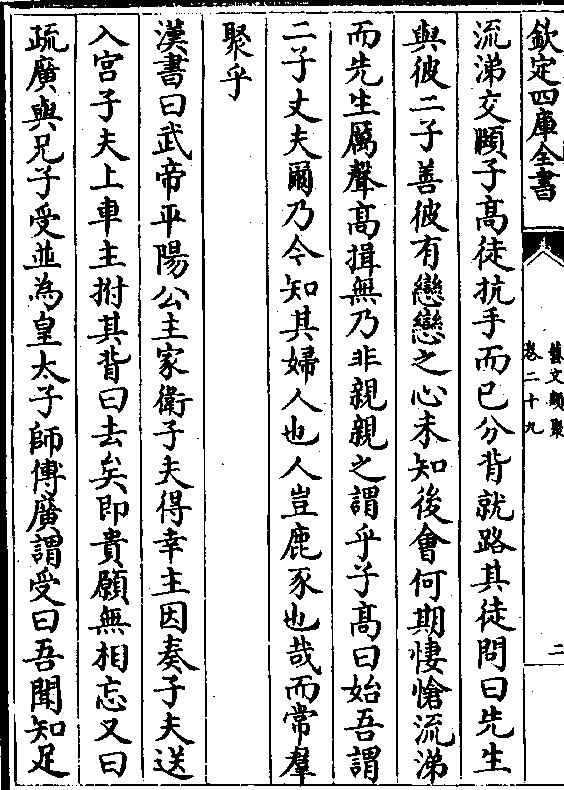 欽定四庫全書
藝文類聚
卷二十九
二
流涕交頤子高徒抗手而已分背就路其徒問曰先生
與彼二子善彼有戀戀之心未知後會何期悽愴流涕
而先生厲聲高揖無乃非親親之謂乎子高曰始吾謂
二子丈夫爾乃今知其婦人也人豈鹿豕也哉而常羣
聚乎
漢書曰武帝平陽公主家衛子夫得幸主因奏子夫送
入宫子夫上車主拊其背曰去矣即貴願無相忘又曰
疏廣與兄子受並為皇太子師傅廣謂受曰吾聞知足